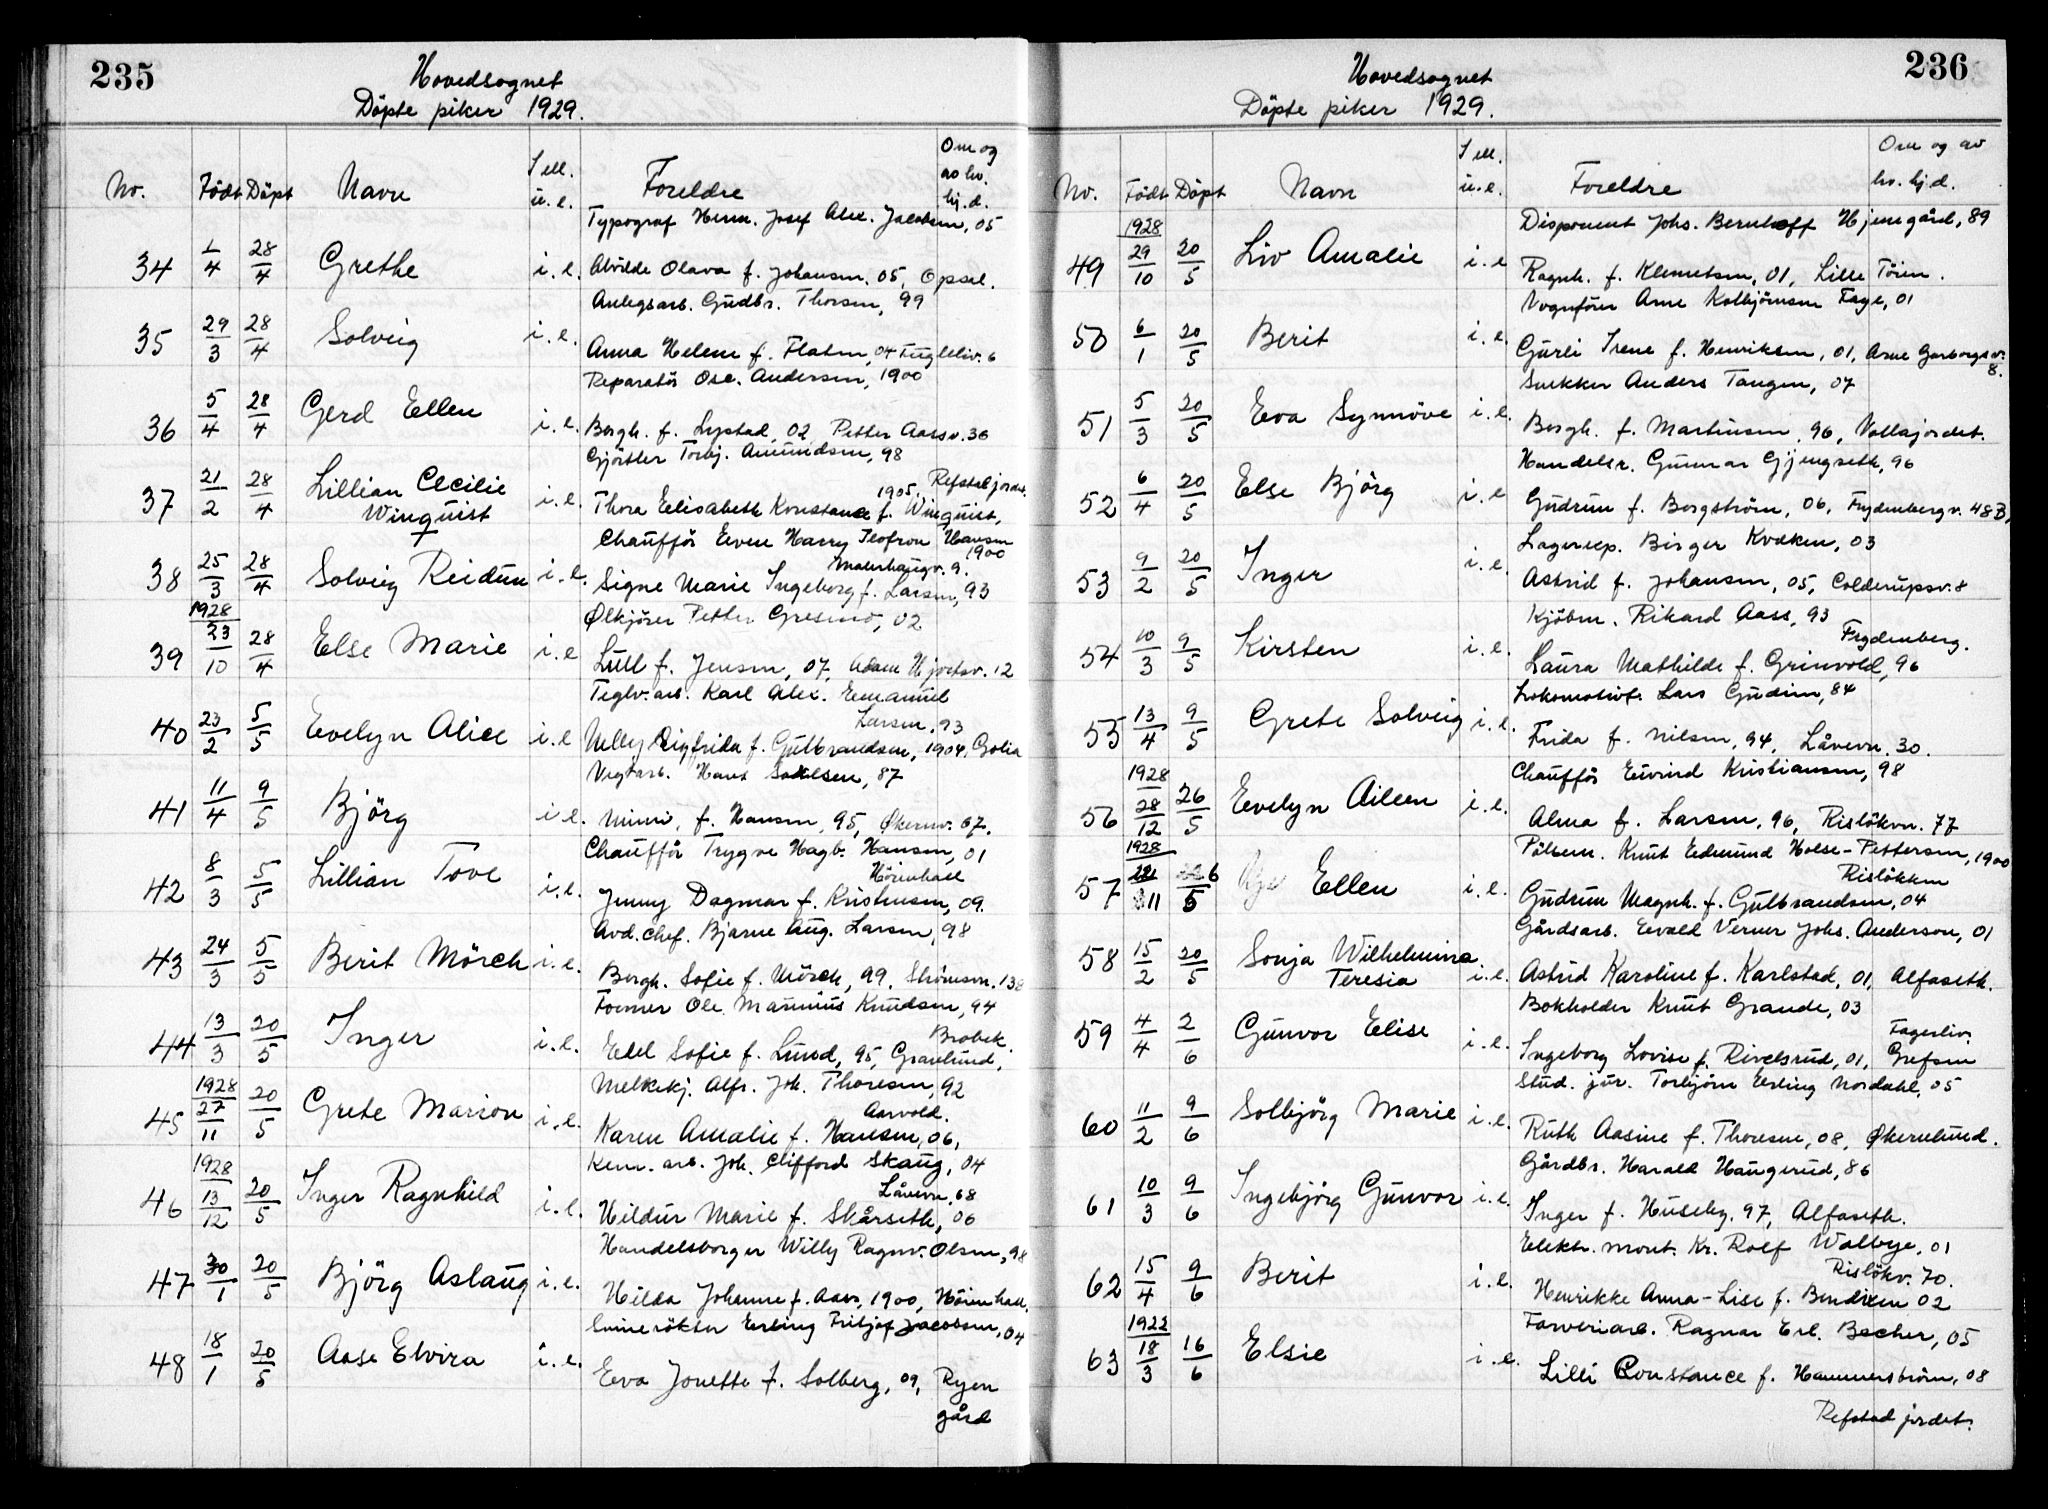 235
Hovedsognet
Döpte piker 1929.
No. Födt Döpt Navn I ell. u.e. Foreldre Om og av hv. hj.d.
Typograf Herm. Josef Alex. Jacobsen, 05
34 1/4 28/4 Grethe i.e. Alvilde Olava f. Johansen, 05, Opsal.
Anlegsarb. Gudbr. Thorsen, 99
35 29/3 28/4 Solveig i.e. Anna Helene f. Flaten, 04 Fugleliv. 6
Reparatör Osc. Andersen, 1900
36 5/4 28/4 Gerd Ellen i.e. Borgh. f. Lystad, 02, Petter Aassv. 36
Gjörtler Torbj. Amundsen, 98
37 21/2 28/4 Lillian Cecilie Winquist i.e. Thora Elisabeth Konstance f. Winquist, 1905. Refstadjordet.
Chaufför Even Harry Teofron Hansen 1900
38 25/3 28/4 Solveig Reidun i.e. Signe Marie Ingeborg f. Larsen, 93 Malerhaugv. 9.
Ølkjörer Petter Gresmo, 02
39 1928 23/10 28/4 Else Marie i.e Lull f. Jensen, 07, Adam Hjortsv. 12
Teglv.arb. Karl Alex. Emanuel
Larsen, 93
40 23/2 5/5 Evelyn Alice i.e Nelly Sigfrida f. Gulbrandsen, 1904, Golia
Vegtarb. Hans Soelsen, 87
41 11/4 9/5 Björg i.e. Mimi, f. Hansen, 95, Økernv. 67.
Chaufför Trygve Hagb. Hansen, 01
42 8/3 5/5 Lillian Tove i.e. Jenny Dagmar f. Kristensen, 09. Hörenhall
Avd.chef. Bjarne Aug. Larsen, 98
43 24/3 5/5 Berit Mörch i.e. Borgh. Sofie f. Mörch, 99, Strömsvn. 138
Former Ole Marinius Knudsen, 94
44 13/3 20/5 Inger i.e. Edel Sofie f. Lund, 95, Granlund, Brobek.
Melkekj. Alfr. Joh. Thoresen, 92
45 1928 27/11 20/5 Grete Marion i.e. Karen Amalie f. Hansen, 06, Aarvold.
Kem. arb. Joh. Clifford Skaug, 04
46 1928 13/12 20/5 Inger Ragnhild i.e. Hildur Marie f. Skårseth, 06 Låvevn. 68
Handelsborger Willy Ragnv. Olsen, 98
47 30/1 20/5 Björg Aslaug i.e. Hilda Johanne f. Aass, 1900, Hörenhall.
Svinerökter Erling Fritjof Jacobsen, 04
48 18/1 20/5 Aase Elvira i.e. Eva Jonette f. Solberg, 09, Ryen
gård
236
Hovedsognet
Döpte piker 1929.
No. Födt Döpt Navn I ell. u.e. Foreldre Om og av hv. hj.d.
Disponent Johs. Bernhoff Hjemgård, 89
49 1928 29/10 20/5 Liv Amalie i.e Ragnh. f. Klemetsen, 01, Lille Töien.
Vognförer Arne Kolbjörnsen Fage, 01
50 6/1 20/5 Berit i.e. Gurli Irene f. Henriksen, 01, Arne Garborgs v. 8.
Snekker Anders Tangen, 07
51 5/3 20/5 Eva Synnöve i.e. Borgh. f. Martinsen, 96, Vollajordet.
Handelsr. Gunnar Gjengseth, 96
52 6/4 20/5 Else Björg i.e Gudrun f. Borgström, 06, Frydenbergv. 48B,
Lagereksp. Birger Kvæken, 03
53 9/2 20/5 Inger i.e. Astrid f. Johansen, 05, Colderupsv. 8
Kjöbm. Rikard Aass, 93
54 10/3 9/5 Kirsten i.e. Laura Mathilde f. Grinvold, 96 Frydenberg.
Lokomotivf. Lars Gudim, 84
55 13/4 9/5 Grete Solveig i.e. Frida f. Nilsen, 94, Låvevn. 30.
Chaufför Eivind Kristiansen, 98
56 1928 28/12 26/5 Evelyn Aileen i.e. Alma f. Larsen, 96, Rislökvn. 77
Pölsem. Knut Edmund Holse-Pettersen, 1900
57 1928 /11 6/5 Ellen i.e. Gudrun Magnh. f. Gulbrandsen, 04 Rislökken
Gårdsarb. Evald Verner Johs. Anderson, 01
58 15/2 20/5 Sonja Wilhelmina Teresia i.e. Astrid Karoline f. Karlstad, 01, Alfaseth.
Bokholder Knut Grande, 03
59 4/4 2/6 Gunvor Elise i.e. Ingeborg Lovise f. Rivelsrud, 01, Fagerliv. Grefsen
Stud. jur. Torbjörn Erling Nordahl, 05
60 11/2 9/6 Solbjörg Marie i.e. Ruth Aasine f. Thoresen, 08, Økernlund.
Gårdbr. Harald Haugerud, 86
61 10/3 9/6 Ingebjörg Gunvor i.e. Inger f. Huseby. 97, Alfaseth.
Elektr. mont. Kr. Rolf Walbye, 01
62 15/4 9/6 Berit i.e. Henrikke Anna-Lise f. Bendixen 02 Rislökv. 70.
Farveriarb. Ragnar Erl. Becher, 05
63 1922 18/3 16/6 Elsie i.e. Lilli Constance f. Hammerström, 08
Refstad jordet.